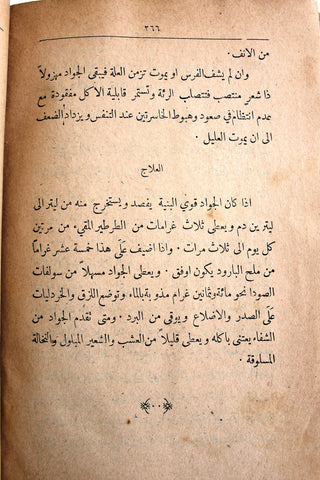 ٣٦٦
من الانف .
وان لم يشفَ الفرس او يموت تزمن العلة فيبقى الجواد مهزولاً
ذا شعرٍ منتصب فتتصلب الرئة وتستمر قابلية الاكل مفقودة مع
عدم انتظام في صعود وهبوط الخاسرتين عند التنفس ويزداد الضعف
الى ان يموت العليل .
العلاج
اذا كان الجواد قوي البنية يفصد ويستخرج منه من ليتر الى
ليترين دم ويعطى ثلاث غرامات من الطرطير المقيء من مرتين
كل يوم الى ثلاث مرات . واذا اضيف على هذا خمسة عشر غراماً
من ملح البارود يكون اوفق . ويعطى الجواد مسهلاً من سولفات
الصودا نحو مائة وثمانين غرام مذوبة بالماء وتوضع اللزق والخردليات
على الصدر والاضلاع ويوقى من البرد . ومتى تقدم الجواد من
الشفاء يعتنى باكله ويعطى قليلاً من العشب والشعير المبلول والنخالة
المسلوقة .